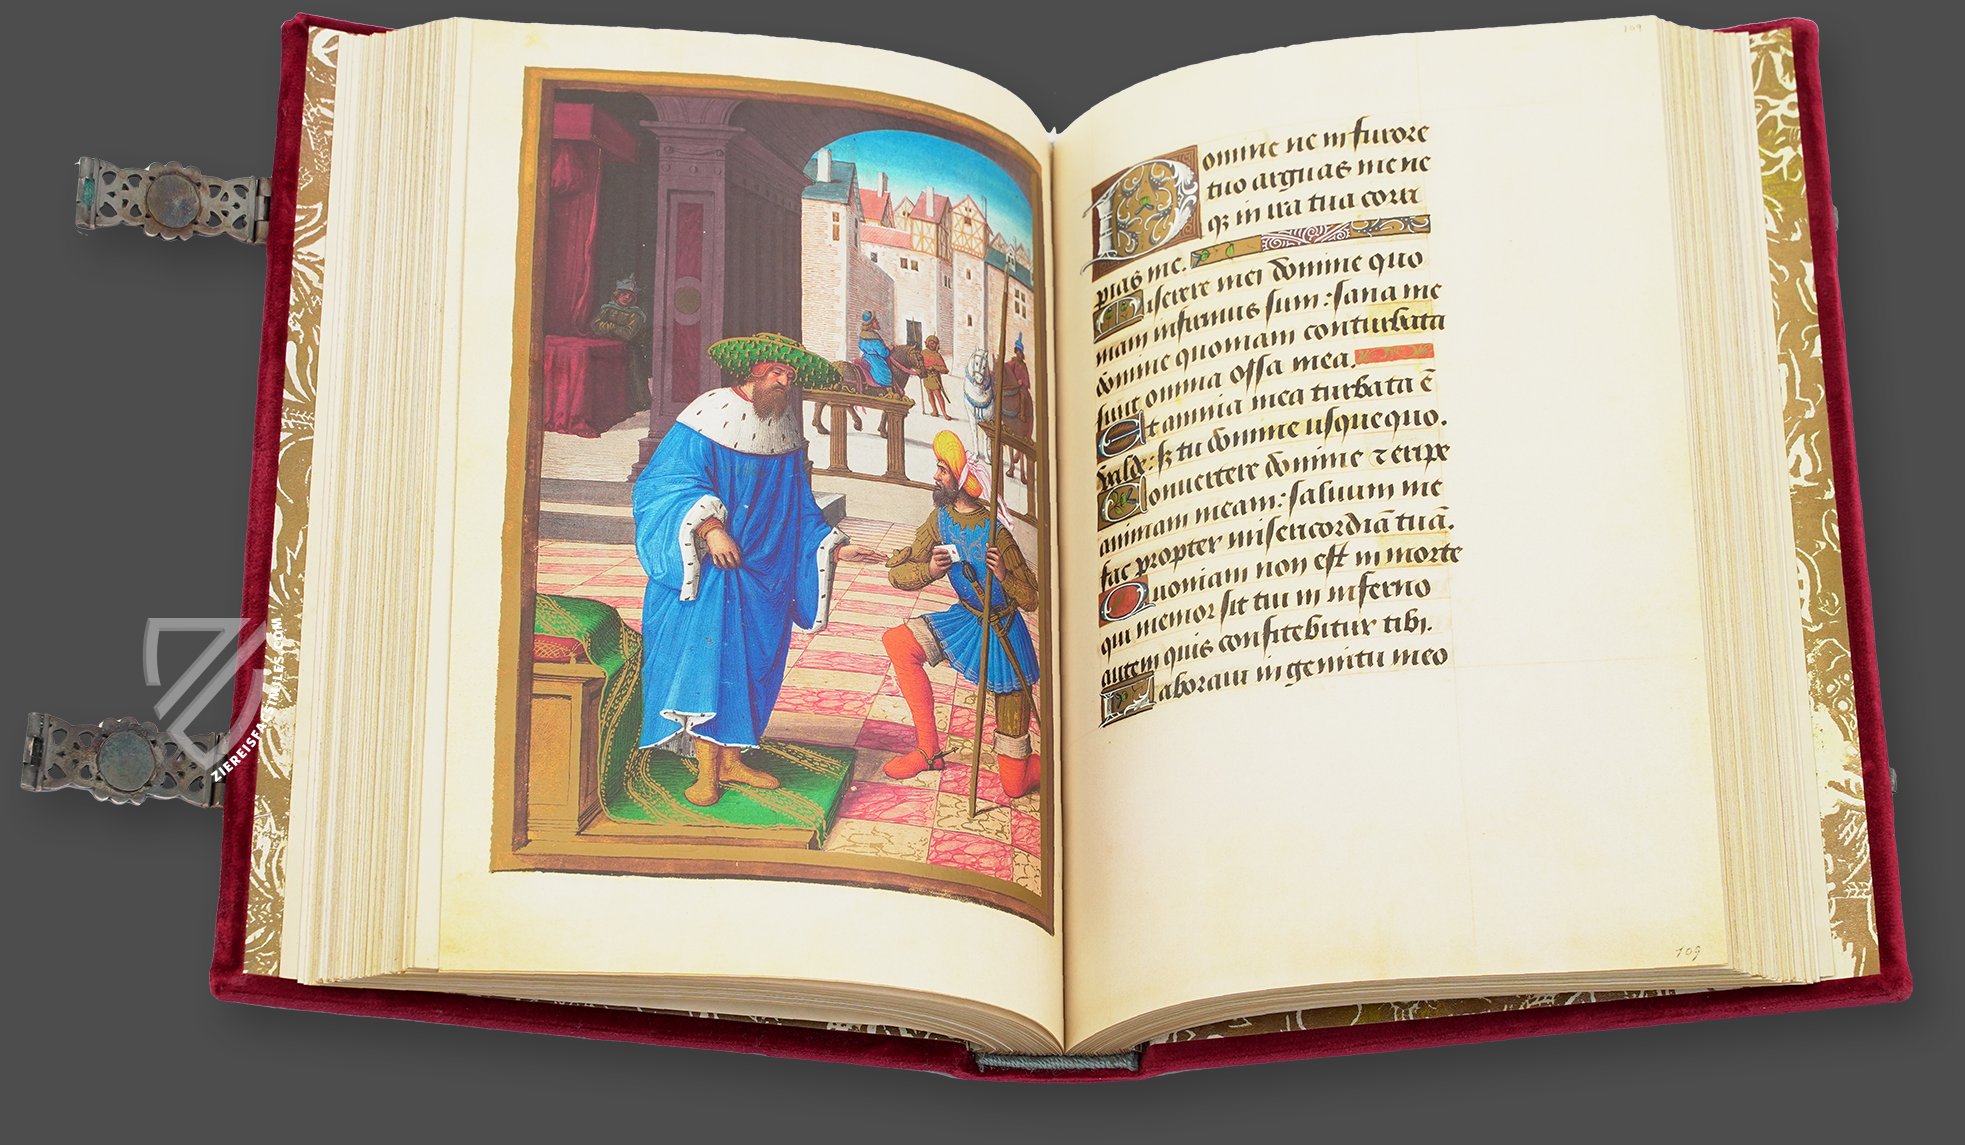 ZIEREISFACSIMILES.COM
109
Domine ne in furore
tuo arguas me ne
qȝ in ira tua corri
pias me.
Miserere mei domine quo
niam infirmus sum: sana me
domine quoniam conturbata
sunt omnia ossa mea.
Et anima mea turbata ē
valde: sȝ tu domine usquequo.
Conuertere domine ⁊ eripe
animam meam: saluum me
fac propter misericordiā tuā.
Quoniam non est in morte
qui memor sit tui in inferno
autem quis confitebitur tibi.
Laboraui in gemitu meo
109